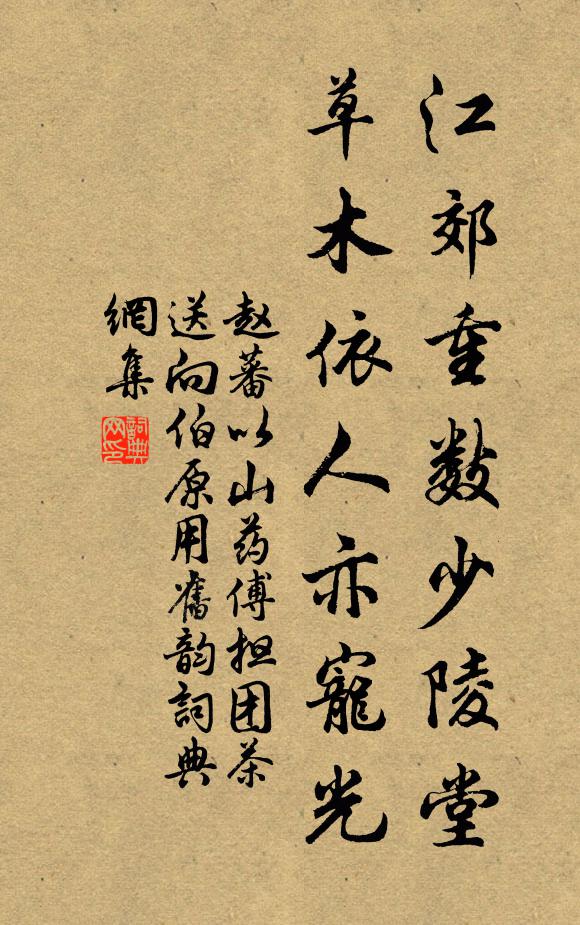 江郊重数少陵堂
草木依人亦寵光
赵蕃以山药傅担团茶
送向伯原用舊韵詞典
網集
詞典
网印